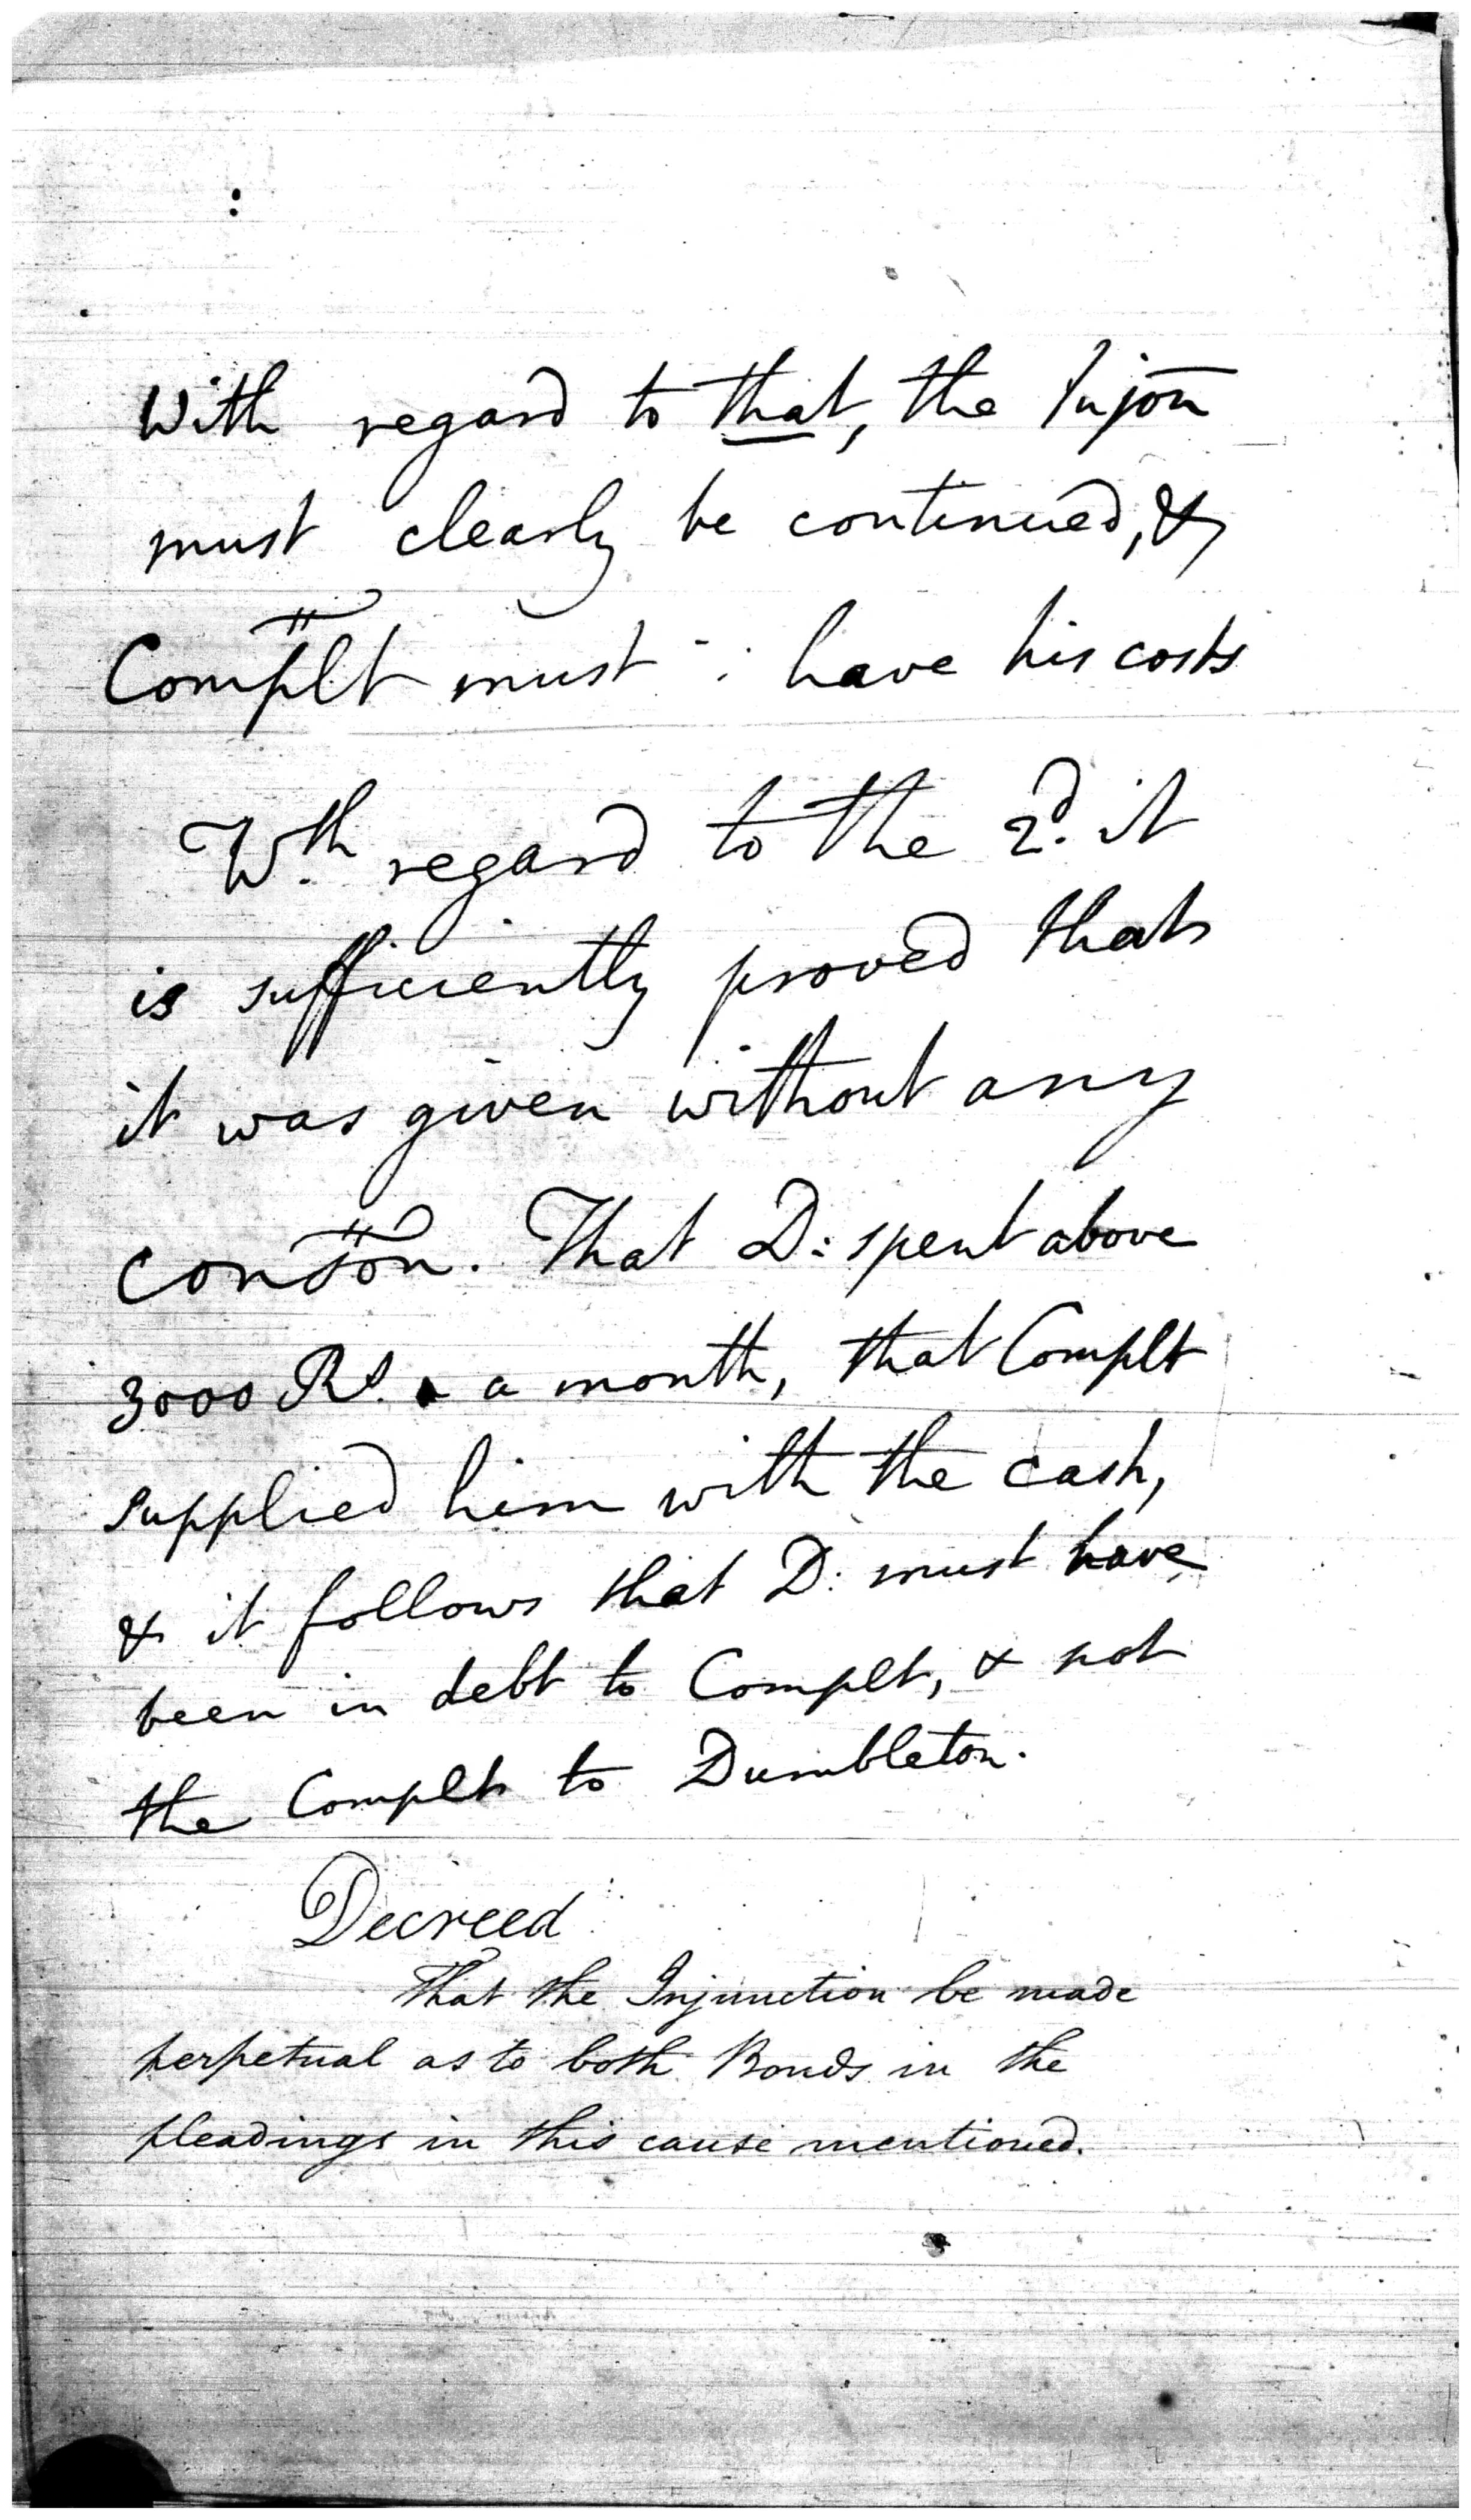 With regard to that, the Injon
must clearly be continued, &
Complt must have his costs
Wth. regard to the 2d. it
is sufficiently proved that
it was given without any
conson. That D: spent above
3000 Rs. a month, that Complt
supplied him with the cash,
& it follows that D: must have
been in debt to Complt, & not
the Complt to Dumbleton.
Decreed
That the Injunction be made
perpetual as to both Bonds in the
pleadings in this cause mentioned.